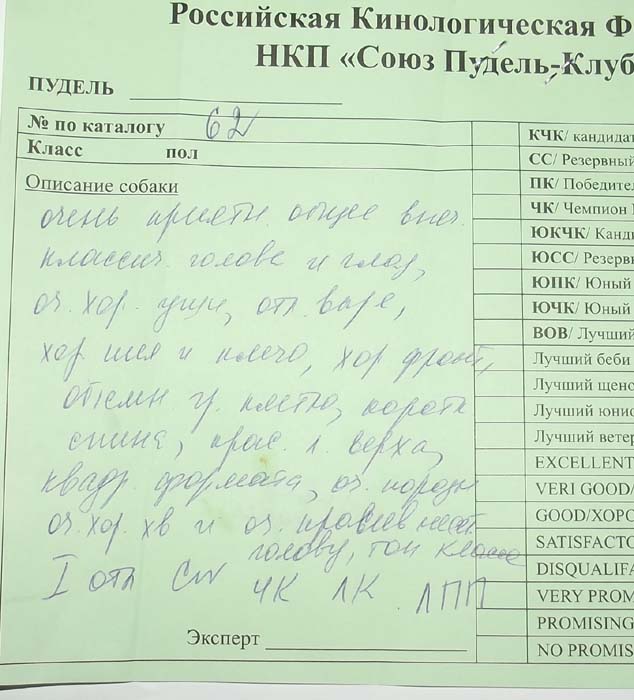 Российская Кинологическая Ф
НКП «Союз Пудель-Клуб
ПУДЕЛЬ
№ по каталогу 62
Класс пол
Описание собаки
очень приятн. общее впеч.
классич. голова и глаз,
оч. хор. уши, отл. выр,
хор. шея и плечо, хор фронт,
объемн гр. клетка, коротк
спина, крас. л. верха,
квадр. формата, оч. породн
оч. хор. хв и оч. несет
голову, тон класса
I отл CW ЧК ЛК ЛПП
Эксперт
КЧК/ кандидат
СС/ Резервный
ПК/ Победител
ЧК/ Чемпион
ЮКЧК/ Канд
ЮСС/ Резерв
ЮПК/ Юный
ЮЧК/ Юный
ВОВ/ Лучший
Лучший беби
Лучший щено
Лучший юнио
Лучший ветер
EXCELLENT
VERI GOOD/
GOOD/ХОРО
SATISFACTO
DISQUALIFA
VERY PROM
PROMISING
NO PROMIS